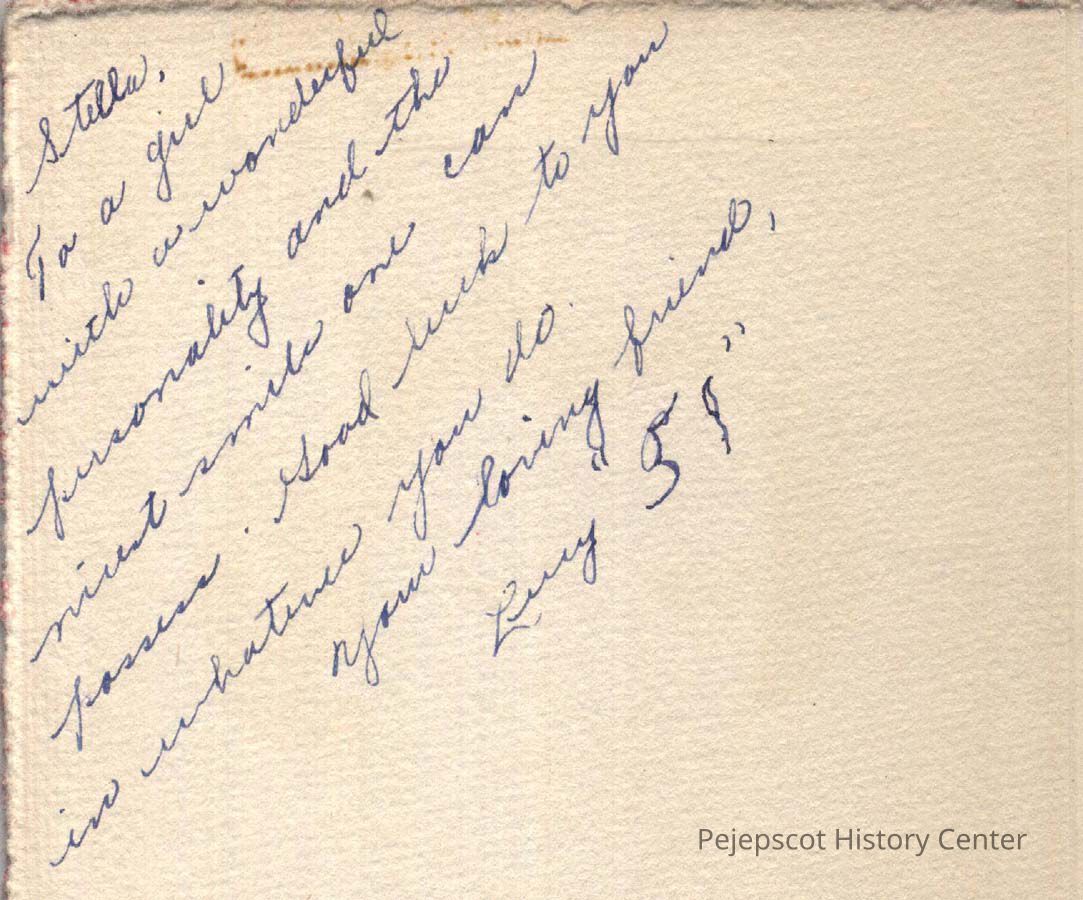 Stella,
To a girl
with a wonderful
personality and the
nicest smile one can
possess. Good luck to you
in whatever you do.
Your loving friend,
"59"
Pejepscot History Center